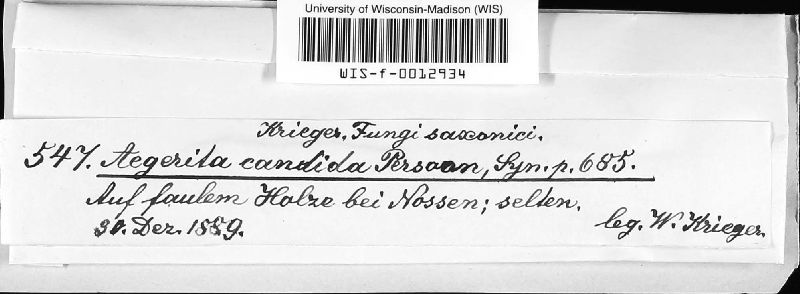 University of Wisconsin-Madison (WIS)
WIS-f-0012934
Krieger, Fungi saxonici.
547. Aegerita candida Persoon, Syn. p. 685.
Auf faulem Holze bei Nossen; selten.
Dez. 1889.
leg. W. Krieger.